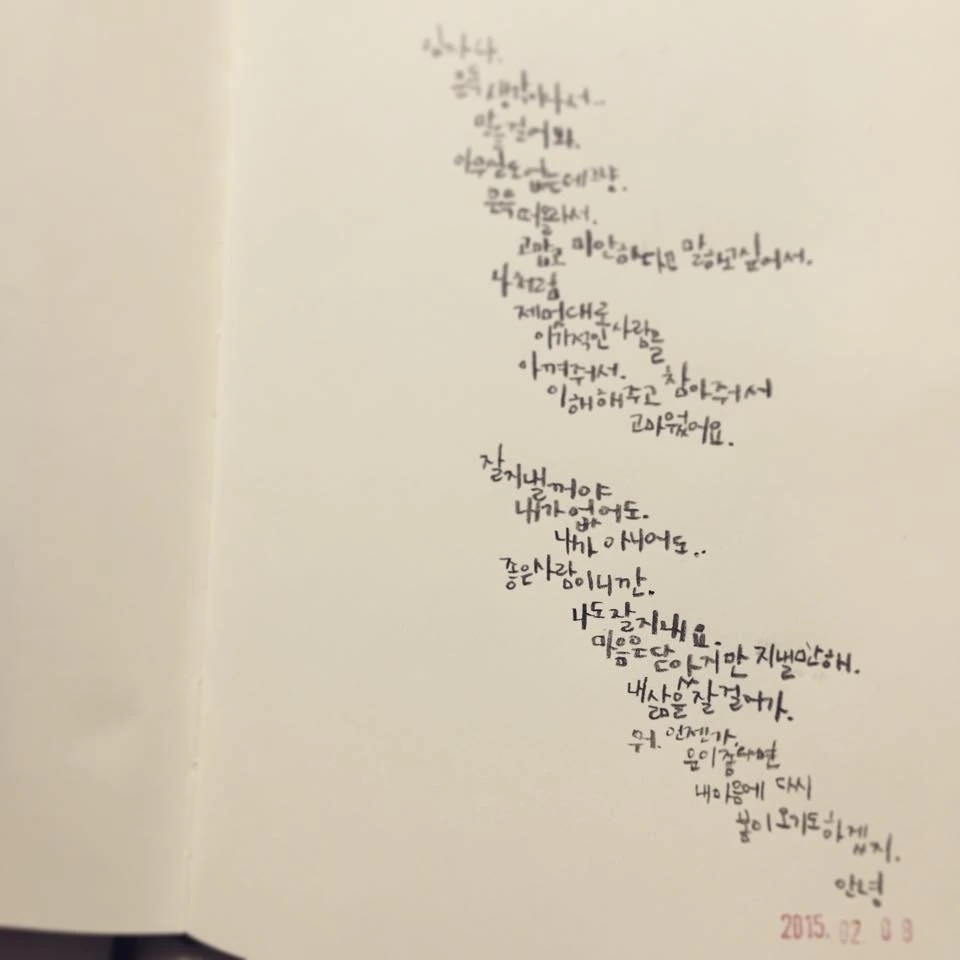 문득 생각이나서..
말을걸어봐.
아무일도없는데그냥.
문득 떠올라서.
고맙고 미안하다고 말하고싶어서.
나처럼
제멋대로
이기적인 사람을
아껴줘서. 참아줘서
이해해주고
고마웠어요.
잘지낼꺼야
내가 없어도.
내가 아니어도..
좋은사람이니깐.
나도 잘지내요.
마음은 지낼만해.
내삶을 잘걸어가.
뭐. 언젠가.
운이좋다면
내마음에 다시
봄이 오기도하겠지.
안녕
2015. 02 0 8